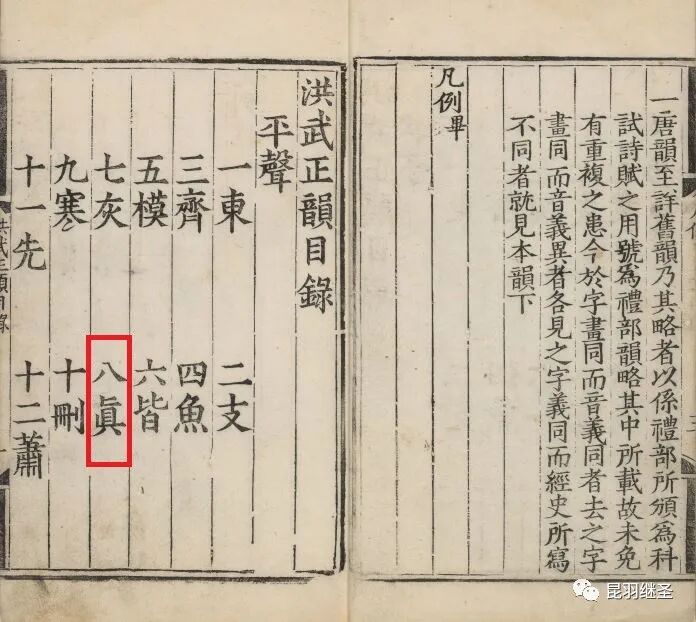 一唐韻至詳舊韻乃其略者以係禮部所頒為科
試詩賦之用號為禮部韻略其中所載故未免
有重複之患今於字畫同而音義同者去之字
畫同而音義異者各見之字義同而經史所寫
不同者就見本韻下
凡例畢
洪武正韻目錄
平聲
一東 二支
三齊 四魚
五模 六皆
七灰 八眞
九寒 十刪
十一先 十二蕭
洪武正韻目錄
昆羽继圣